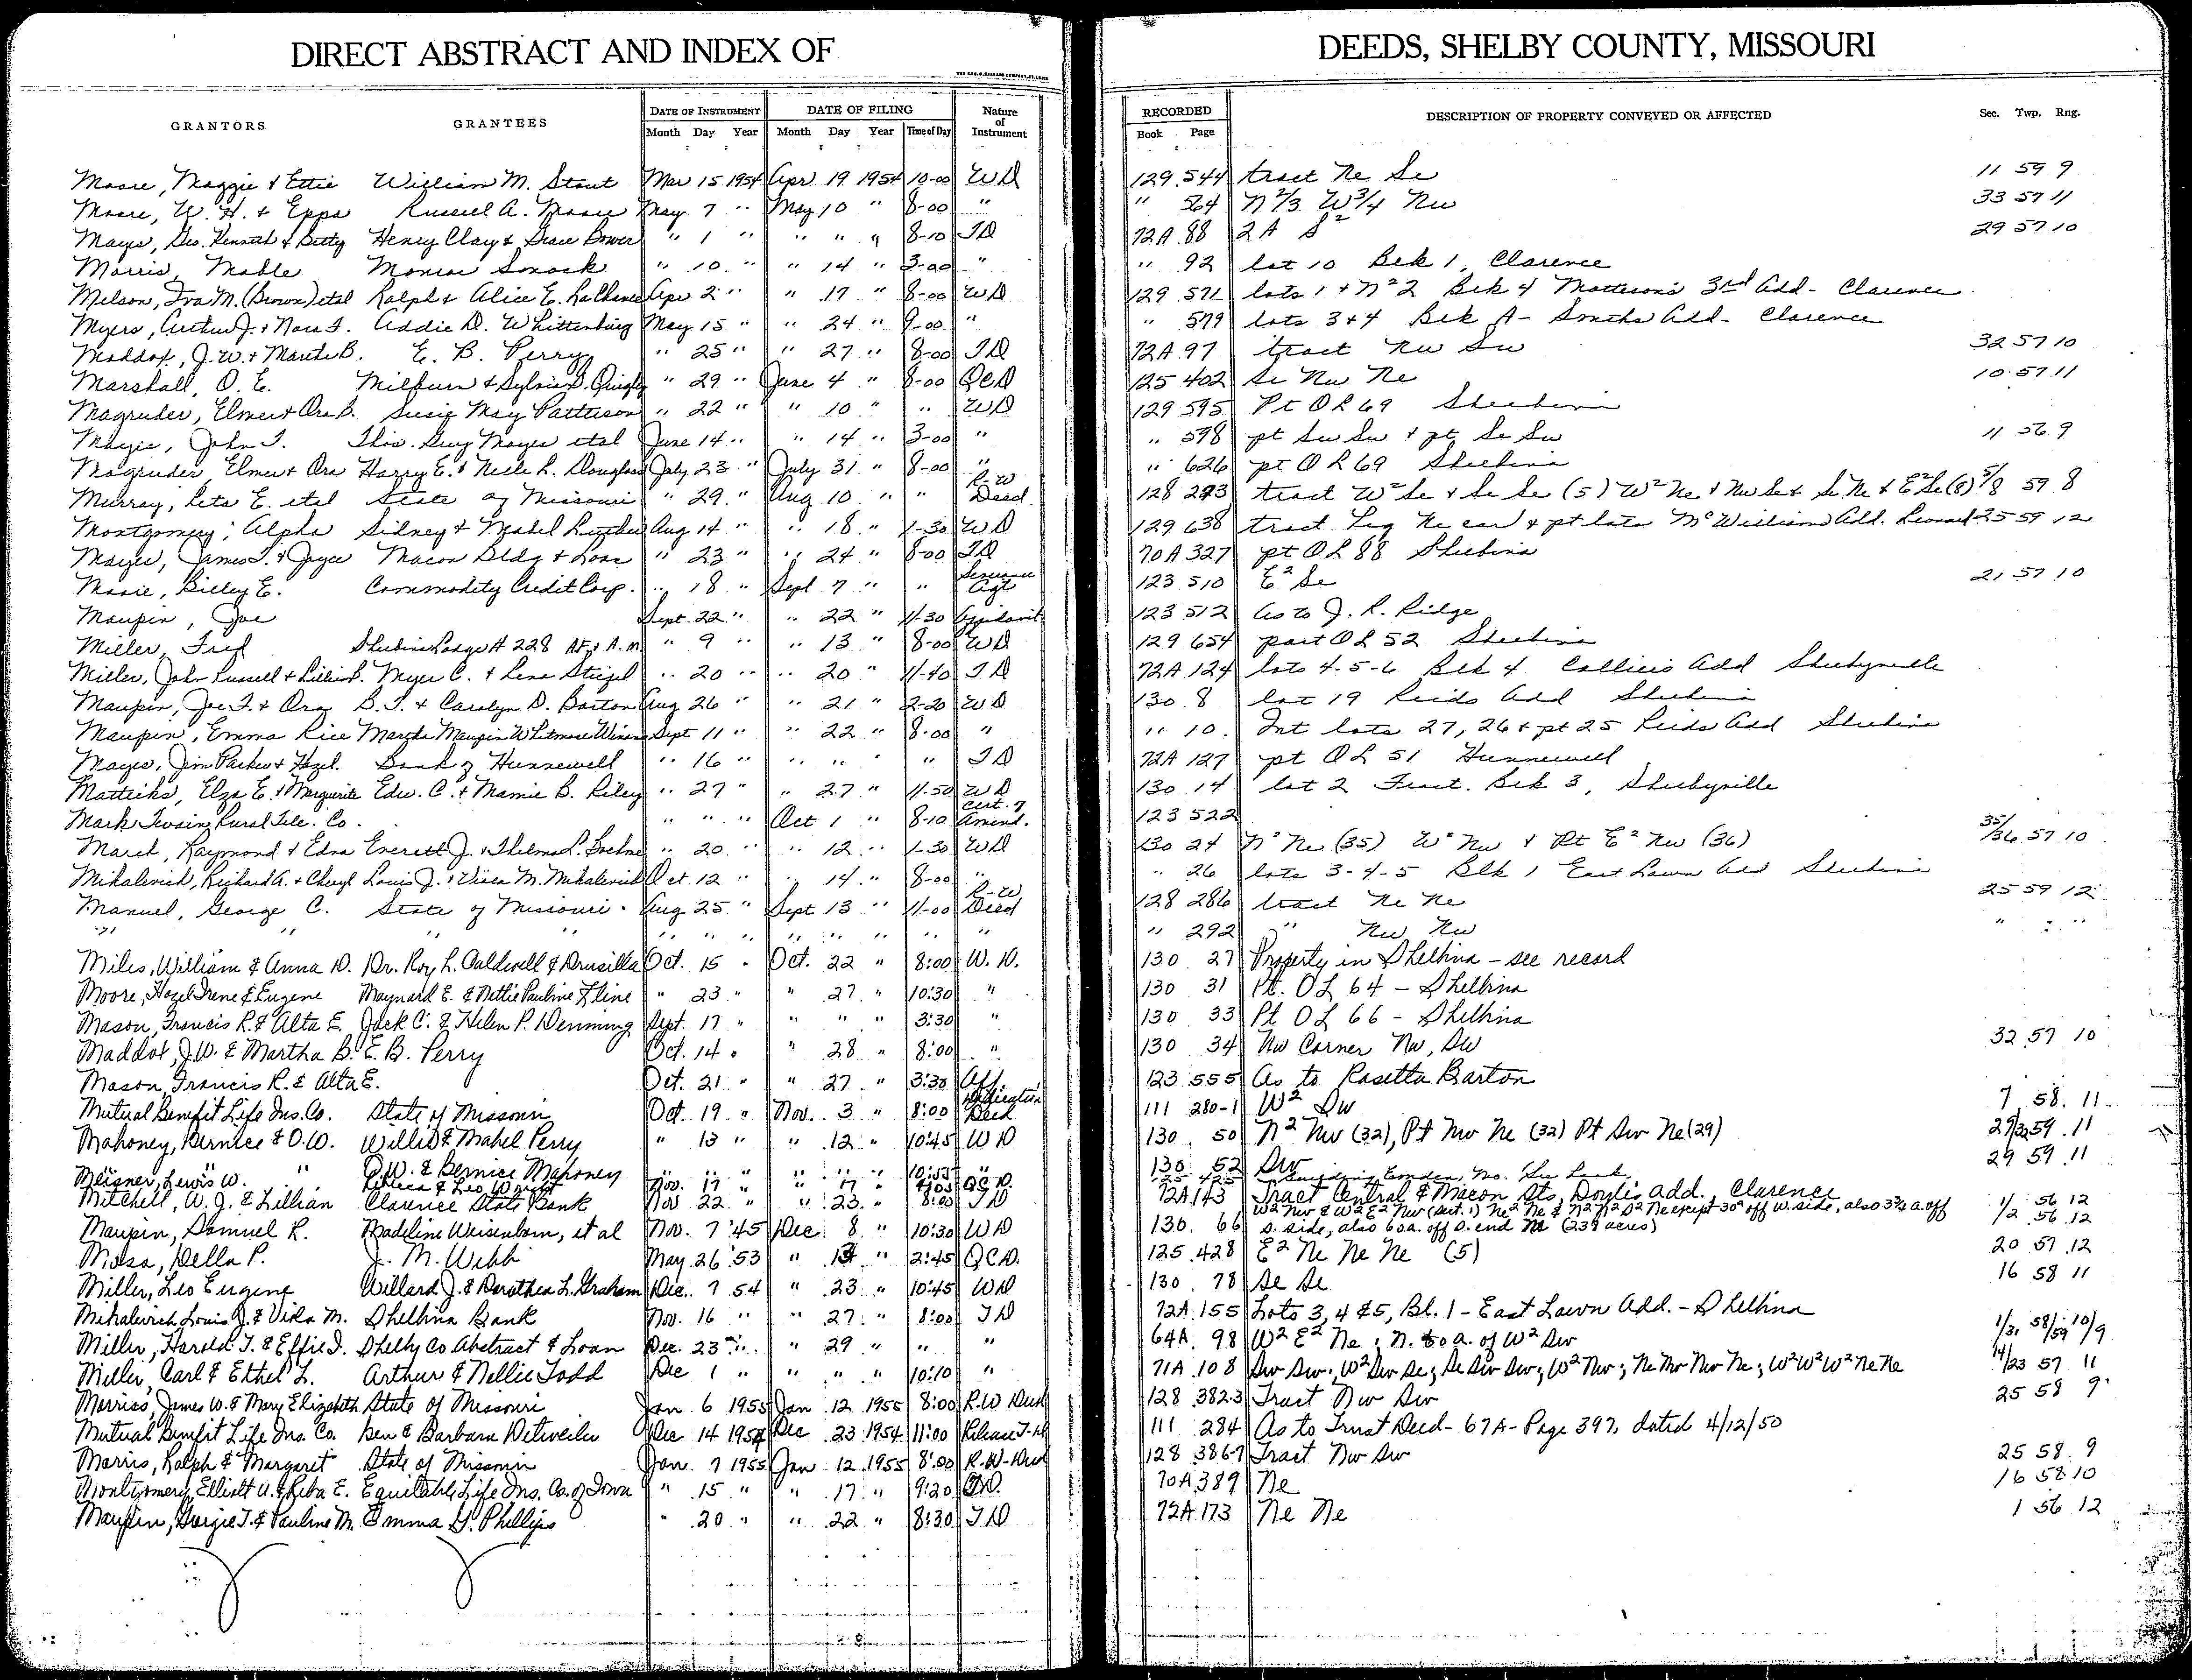 DIRECT ABSTRACT AND INDEX OF DEEDS, SHELBY COUNTY, MISSOURI
GRANTORS GRANTEES DATE OF INSTRUMENT DATE OF FILING Nature of Instrument RECORDED DESCRIPTION OF PROPERTY CONVEYED OR AFFECTED Sec. Twp. Rng.
Month Day Year Month Day Year Time of Day Book Page
Moore, Maggie & Ettie William M. Stout Mar 15 1954 Apr 19 1954 10-00 WD 129 544 tract Ne Se 11 59 9
Moore, W. H. & Eppa Russell A. Moore May 7 " May 10 " 8-00 " " 564 N 2/3 W 3/4 Nw 33 57 11
Mays, Geo. Kenneth & Betty Henry Clay & Grace Bower " 1 " " " " 8-10 TD 72A 88 2 A S² 29 57 10
Morris, Mable Monroe Smock " 10 " " 14 " 3-00 " " 92 lot 10 Blk 1, Clarence
Melson, Iva M. (Brown) etal Ralph & Alice E. Apr 2 " " 17 " 8-00 WD 129 571 lots 1 & N² 2 Blk 4 3rd Add - Clarence
Myers, Arthur J. & Nora F. Addie D. Whittenburg May 15 " " 24 " 9-00 " " 579 lots 3 & 4 Blk A - Smiths Add - Clarence
Maddox, J.W. & Martha B. E. B. Perry " 25 " " 27 " 8-00 TD 72A 97 tract Nw Sw 32 57 10
Marshall, O. E. Milburn & Sylvia D. Quigley " 29 " June 4 " 8-00 QCD 125 402 Se Nw Ne 10 57 11
Magruder, Elmer & Ora B. Susie May Patterson " 22 " " 10 " " WD 129 595 Pt OL 69 Shelbina
John T. Thos. Guy etal June 14 " " 14 " 3-00 " " 598 pt Sw Sw & pt Se Sw 11 56 9
Magruder, Elmer & Ora Harry E. & Nelle L. Douglass July 23 " July 31 " 8-00 " " 626 pt OL 69 Shelbina
Murray, Leta E. etal State of Missouri " 29 " Aug 10 " " R-W Deed 128 tract W² Se & Se Se (5) W² Ne & Nw Se & Se Ne & E² Se (8) 5/8 59 8
Montgomery, Alpha Sidney & Mabel Aug 14 " " 18 " 1-30 WD 129 638 tract Ne cor & pt lots McWilliams Add. Leonard 25 59 12
James T. & Joyce Macon Bldg & Loan " 23 " " 24 " 8-00 TD 70A 327 pt OL 88 Shelbina
Billy E. Commodity Credit Corp. " 18 " Sept 7 " " Severance Agt 123 510 E² Se 21 57 10
Maupin, Joe Sept. 22 " " 22 " 11-30 Affidavit 123 512 As to J. R. Ridge
Miller, Fred Shelbina Lodge # 228 AF & A.M. " 9 " " 13 " 8-00 WD 129 654 part OL 52 Shelbina
Miller, John Russell & Lillian P. Myer C. & Lena Stiegel " 20 " " 20 " 11-40 TD 72A 124 lots 4-5-6 Blk 4 Colliers Add Shelbyville
Maupin, Joe T. & Ora B. T. & Carolyn D. Barton Aug 26 " " 21 " 2-20 WD 130 8 lot 19 Reids Add Shelbina
Maupin, Emma Rice Martha Maupin Whitmore Sept 11 " " 22 " 8-00 " " 10 Int lots 27, 26 & pt 25 Reids Add Shelbina
Mayes, Jim Parker & Hazel Bank of Hunnewell " 16 " " " " " TD 72A 127 pt OL 51 Hunnewell
Matticks, Elza E. & Marguerite Edw. C. & Mamie B. Riley " 27 " " 27 " 11-50 WD 130 14 lot 2 Fract. Blk 3, Shelbyville
Mark Twain Rural Tele. Co. " " " Oct 1 " 8-10 Cert. of Amend. 123 522
March, Raymond & Edna Everett J. & Thelma L. " 20 " " 12 " 1-30 WD 130 24 N² Ne (35) W² Nw & Pt E² Nw (36) 35/36 57 10
Mihalevich, Richard A. & Cheryl Louis J. & Viola M. Mihalevich Oct. 12 " " 14 " 8-00 " " 26 lots 3-4-5 Blk 1 East Lawn Add Shelbina
Manuel, George C. State of Missouri Aug 25 " Sept 13 " 11-00 R-W Deed 128 286 tract Ne Ne 25 59 12
" " " " " " " " " " " " 292 " Nw Nw " " "
Miles, William & Anna D. Dr. Roy L. Caldwell & Drusilla Oct. 15 " Oct. 22 " 8:00 W.D. 130 27 Property in Shelbina - see record
Moore, Hazel Irene & Eugene Maynard E. & Nettie Pauline Kline " 23 " " 27 " 10:30 " 130 31 Pt. OL 64 - Shelbina
Mason, Francis R. & Alta E. Jack C. & Helen P. Denning Sept. 17 " " " " 3:30 " 130 33 Pt OL 66 - Shelbina
Maddox, J.W. & Martha B. E. B. Perry Oct. 14 " " 28 " 8:00 " 130 34 Nw Corner Nw, Sw 32 57 10
Mason, Francis R. & Alta E. Oct. 21 " " 27 " 3:30 Aff. 123 555 As to Rosetta Barton
Mutual Benefit Life Ins. Co. State of Missouri Oct. 19 " Nov. 3 " 8:00 Dedication Deed 111 280-1 W² Sw 7 58 11
Mahoney, Bernice & O.W. Willis & Mabel Perry " 13 " " 12 " 10:45 WD 130 50 N² Nw (32), Pt Nw Ne (32) Pt Sw Ne (29) 29/32 59 11
" " O.W. & Bernice Mahoney " " " " " " 10:55 " 130 52 Sw 29 59 11
Meisner, Lewis W. Rebecca & Leo Wright Nov. 17 " " 17 " QCD 125 425 Mo. See Book
Mitchell, W. J. & Lillian Clarence State Bank Nov 22 " " 23 " 8:00 TD 72A 143 Tract Central & Macon Sts, Doyles Add., Clarence
W² Nw & W² E² Nw (Sect. 1) Ne² Ne & N² N² S² Ne except 30a off W. side, also 3¾ a. off 1 56 12
Maupin, Samuel R. Madeline Weisenborn, et al Nov. 7 '45 Dec. 8 " 10:30 WD 130 66 S. side, also 60a. off S. end (239 acres) 1/2 56 12
Della P. J. M. Webb May 26 '53 " " 2:45 QCD. 125 428 E² Ne Ne Ne (5) 20 57 12
Miller, Leo Eugene Willard J. & Dorothea L. Graham Dec. 7 54 " 23 " 10:45 WD 130 78 Se Se 16 58 11
Mihalevich, Louis J. & Viola M. Shelbina Bank Nov. 16 " " 27 " 8:00 TD 72A 155 Lots 3, 4 & 5, Bl. 1 - East Lawn Add. - Shelbina
Miller, Harold T. & Effie I. Shelby Co Abstract & Loan Dec. 23 " " 29 " " " 64A 98 W² E² Ne; N. 60 a. of W² Sw 1/31 58/59 10/9
Miller, Carl & Ethel L. Arthur & Nellie Todd Dec 1 " " " " 10:10 " 71A 108 Sw Sw; W² Sw Se; Se Sw Sw; W² Nw; Ne Nw Nw Ne; W² W² W² Ne Ne 14/23 57 11
Morriss, James W. & Mary Elizabeth State of Missouri Jan 6 1955 Jan 12 1955 8:00 R.W Deed 128 382-3 Tract Nw Sw 25 58 9
Mutual Benefit Life Ins. Co. Ben & Barbara Detweiler Dec 14 1954 Dec 23 1954 11:00 Release T.D. 111 284 As to Trust Deed - 67A - Page 397, dated 4/12/50
Morris, Ralph & Margaret State of Missouri Jan. 7 1955 Jan 12 1955 8:00 R-W-Deed 128 386-7 Tract Nw Sw 25 58 9
Montgomery, Elliott A. & Reba E. Equitable Life Ins. Co. of Iowa " 15 " " 17 " 9:20 70A 389 Ne 16 58 10
Maupin, Georgie T. & Pauline M. Emma G. Phillips " 20 " " 22 " 8:30 TD 72A 173 Ne Ne 1 56 12